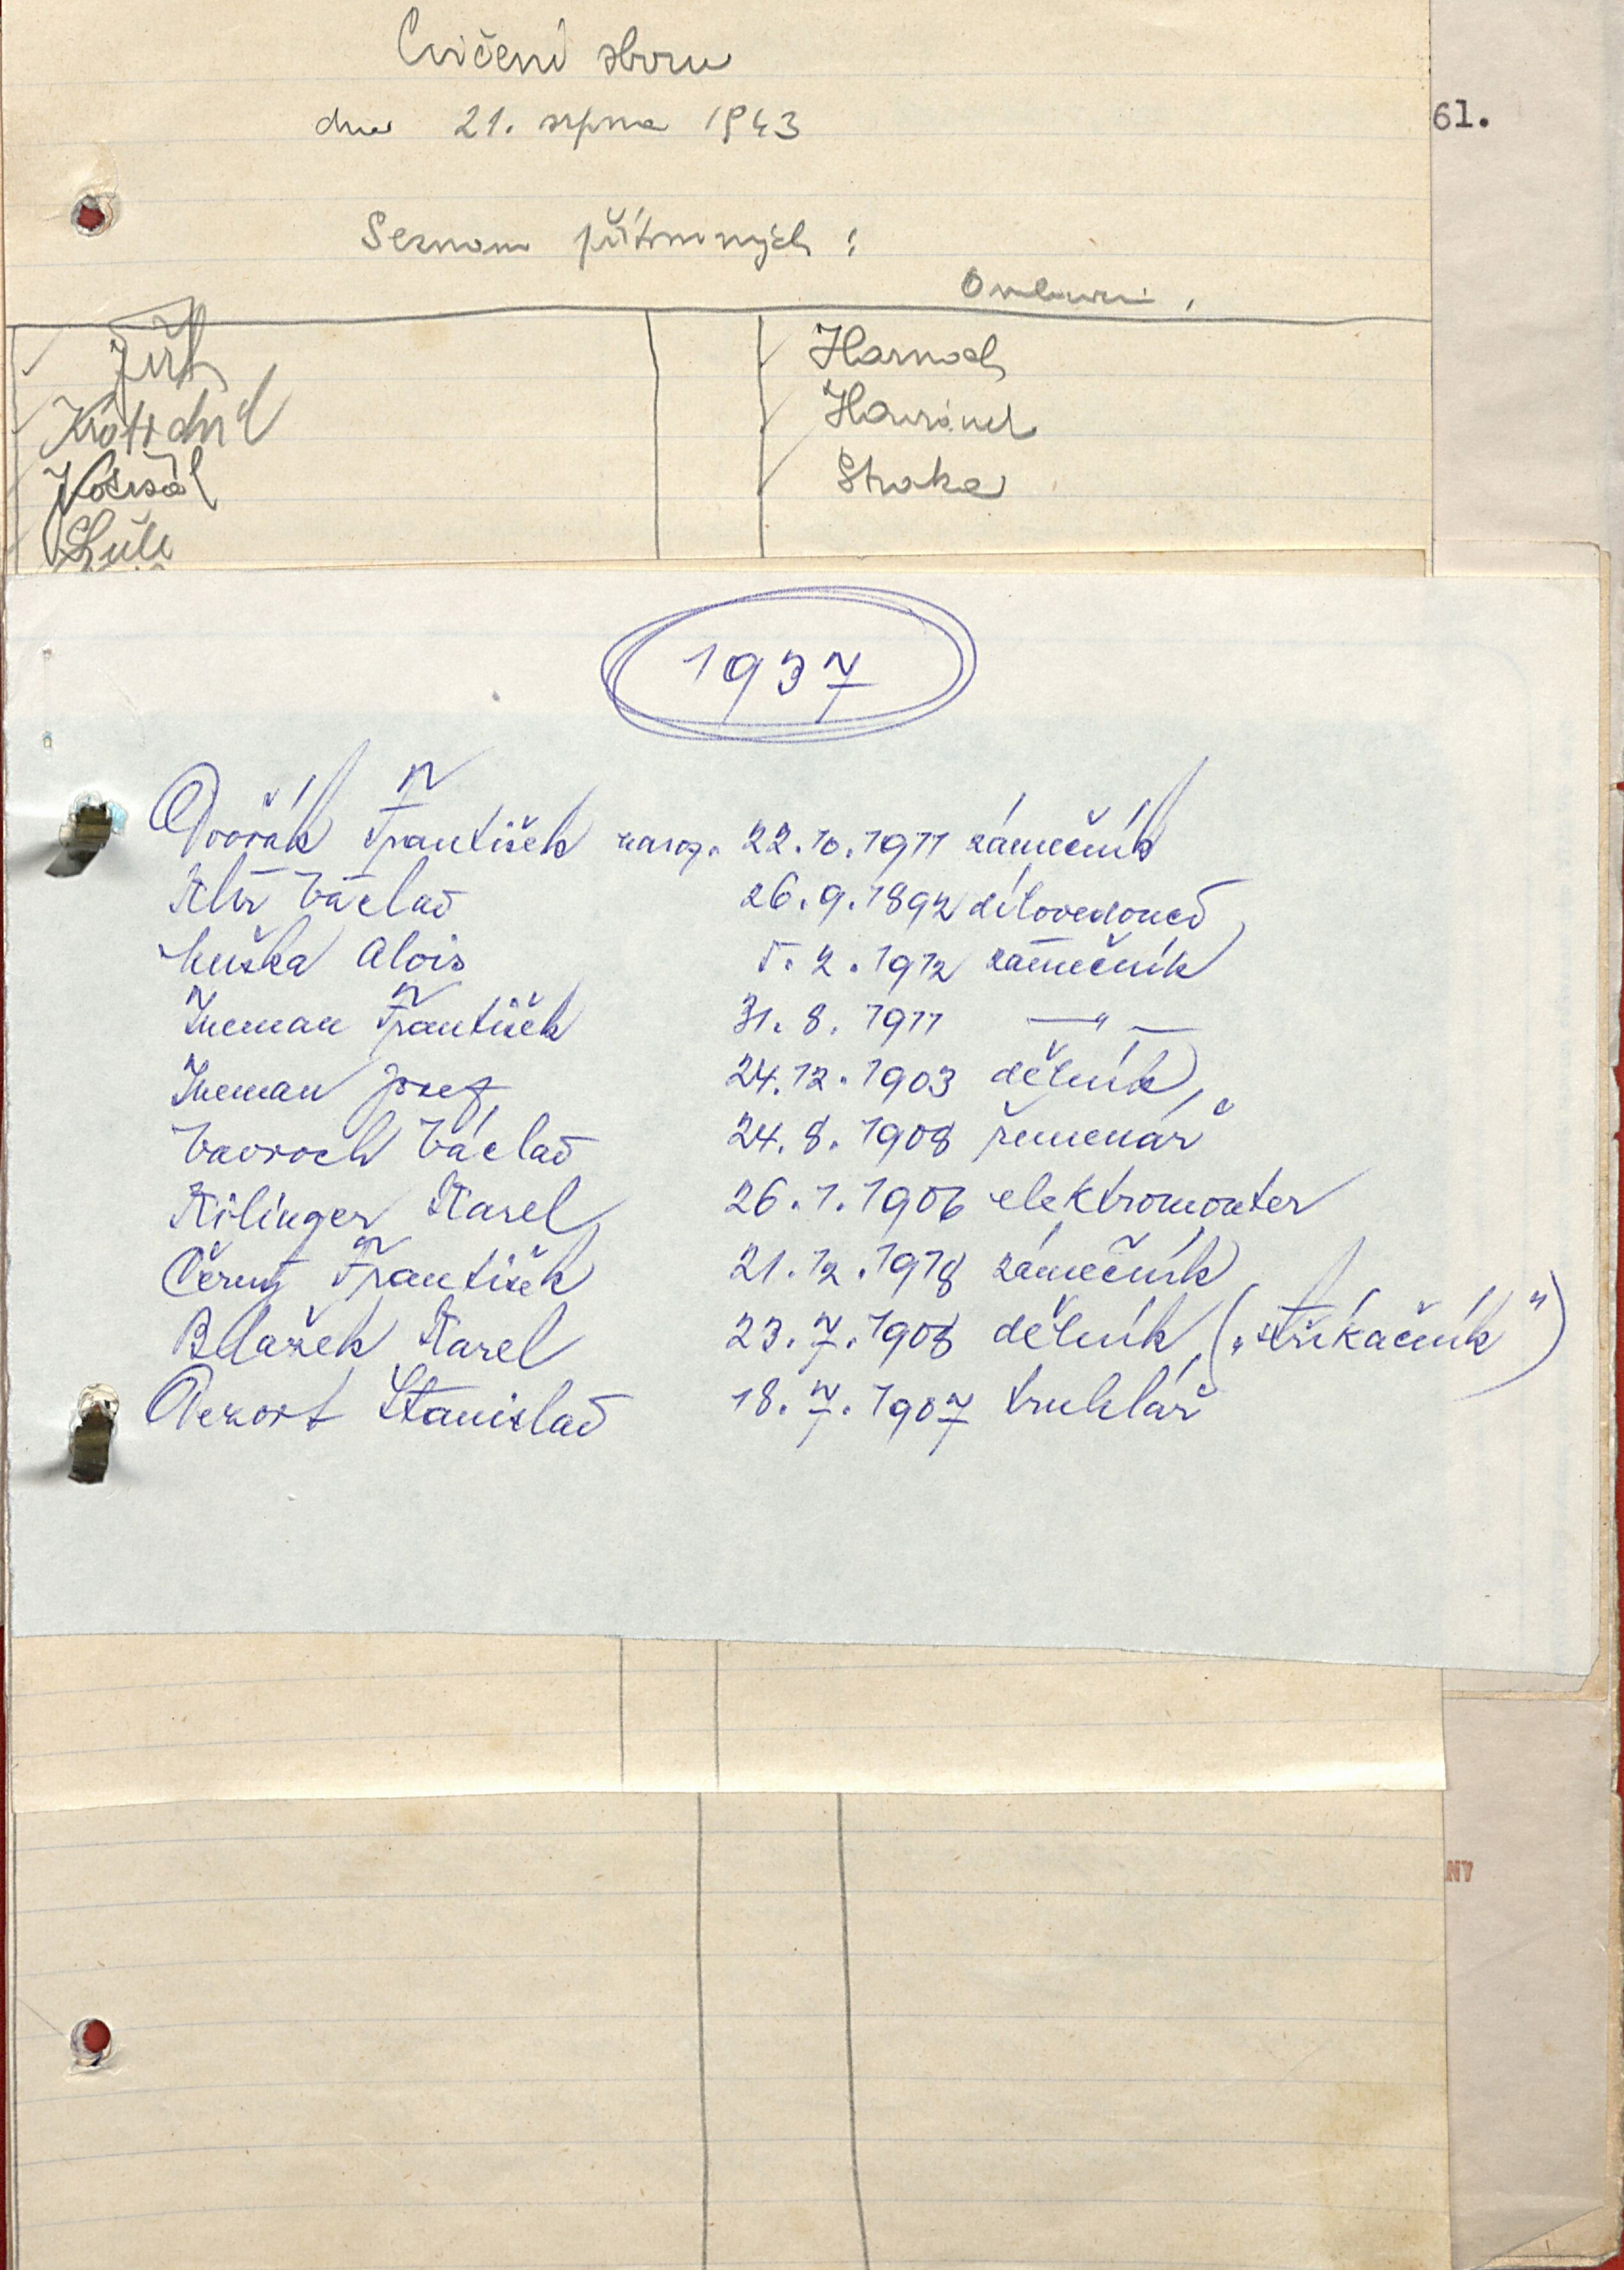 Cvičení sboru
dne 21. srpna 1943
61.
Seznam přítomných:
Omluveni.
Jirk
Harnoch
Krátochvíl
Havránek
Votrsál
Straka
1937
Dvořák František naroz. 22.10.1911 zámečník
Alw Václav 26.9.1892 dílovedoucí
Muška Alois 5.2.1912 zámečník
Zneman František 31.8.1911 —"—
Zneman Josef 24.12.1903 dělník
Vavroch Václav 24.8.1908 řemenář
Kilinger Karel 26.1.1906 elektromonter
Černý František 21.12.1918 zámečník
Blažek Karel 23.7.1908 dělník („stříkačník“)
Dezort Stanislav 18.7.1907 truhlář
NY